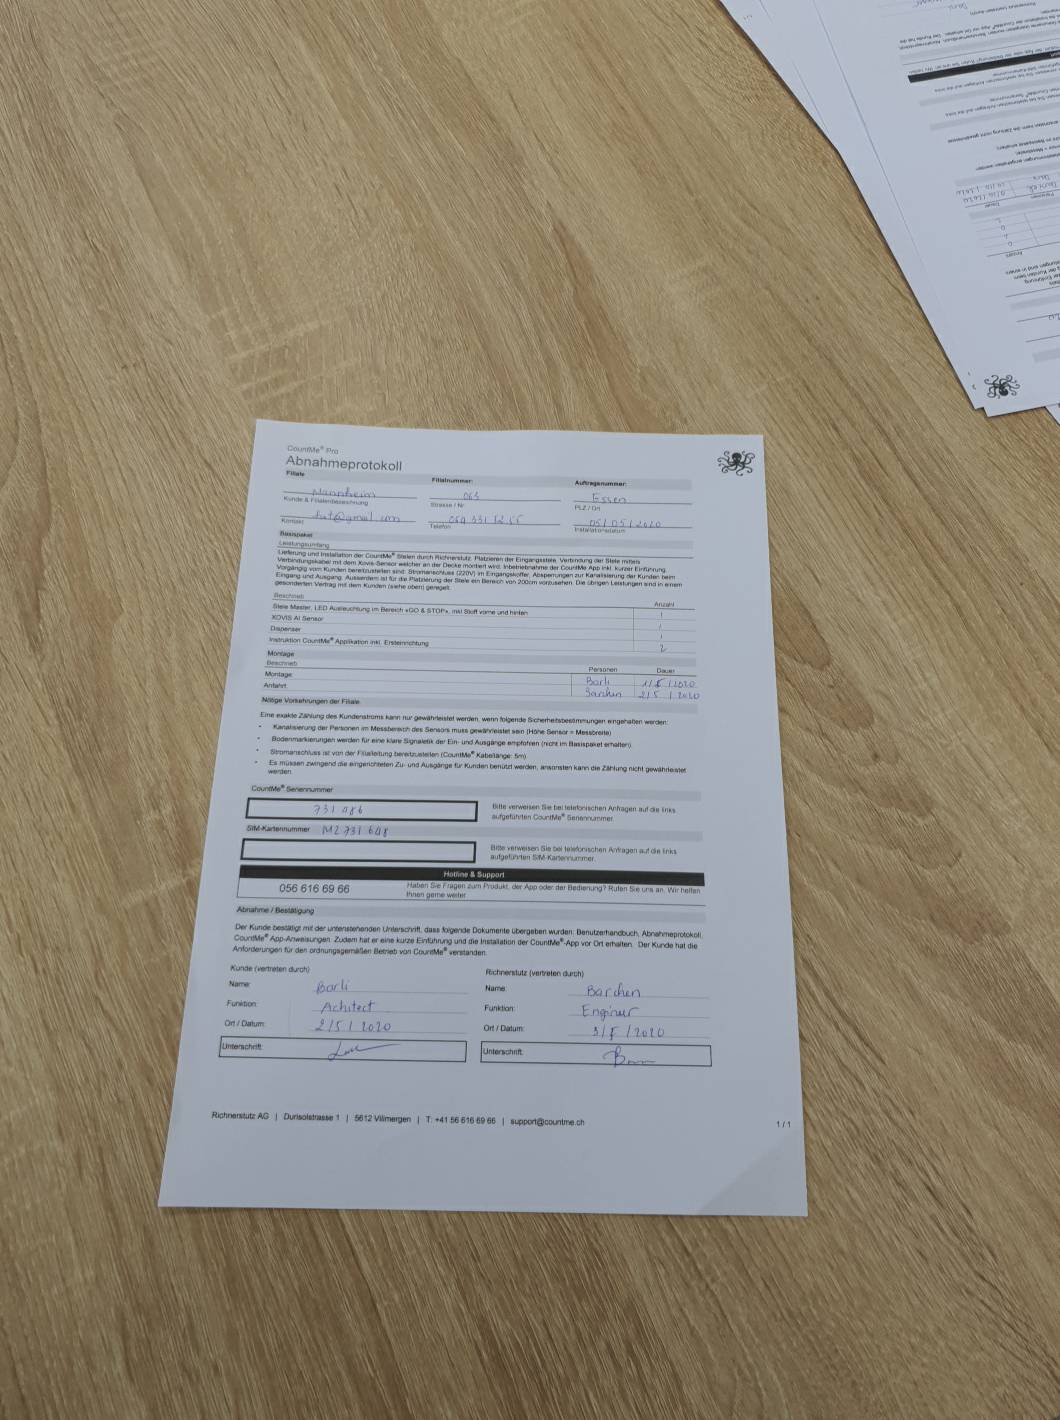 CountMe® Pro
Abnahmeprotokoll
Filiale Filialnummer: Auftragsnummer:
Mannheim 063 Essen
Kunde & Filialenbezeichnung Strasse / Nr PLZ / Ort
05/05/2020
Kontakt Telefon Installationsdatum
Basispaket
Leistungsumfang
Lieferung und Installation der CountMe® Stelen durch Richnerstutz. Platzieren der Eingangsstele, Verbindung der Stele mittels
Verbindungskabel mit dem Xovis-Sensor welcher an der Decke montiert wird. Inbetriebnahme der CountMe App inkl. kurzer Einführung.
Vorgängig vom Kunden bereitzustellen sind: Stromanschluss (220V) im Eingangskoffer, Absperrungen zur Kanalisierung der Kunden beim
Eingang und Ausgang. Ausserdem ist für die Platzierung der Stele ein Bereich von 200cm vorzusehen. Die übrigen Leistungen sind in einem
gesonderten Vertrag mit dem Kunden (siehe oben) geregelt.
Beschrieb Anzahl
Stele Master, LED Ausleuchtung im Bereich «GO & STOP», inkl Stoff vorne und hinten 1
XOVIS AI Sensor 1
Dispenser 1
Instruktion CountMe® Applikation inkl. Ersteinrichtung 2
Montage
Beschrieb Personen Dauer
Montage Barli 1/5/2020
Anfahrt Barchen 2/5/2020
Nötige Vorkehrungen der Filiale
Eine exakte Zählung des Kundenstroms kann nur gewährleistet werden, wenn folgende Sicherheitsbestimmungen eingehalten werden:
• Kanalisierung der Personen im Messbereich des Sensors muss gewährleistet sein (Höhe Sensor = Messbreite)
• Bodenmarkierungen werden für eine klare Signaletik der Ein- und Ausgänge empfohlen (nicht im Basispaket erhalten)
• Stromanschluss ist von der Filialleitung bereitzustellen (CountMe® Kabellänge: 5m)
• Es müssen zwingend die eingerichteten Zu- und Ausgänge für Kunden benützt werden, ansonsten kann die Zählung nicht gewährleistet
werden.
CountMe® Seriennummer
731 086
Bitte verweisen Sie bei telefonischen Anfragen auf die links
aufgeführten CountMe® Seriennummer.
SIM-Kartennummer M2 731 608
Bitte verweisen Sie bei telefonischen Anfragen auf die links
aufgeführten SIM-Kartennummer.
Hotline & Support
056 616 69 66 Haben Sie Fragen zum Produkt, der App oder der Bedienung? Rufen Sie uns an. Wir helfen
Ihnen gerne weiter.
Abnahme / Bestätigung
Der Kunde bestätigt mit der untenstehenden Unterschrift, dass folgende Dokumente übergeben wurden: Benutzerhandbuch, Abnahmeprotokoll,
CountMe® App-Anweisungen. Zudem hat er eine kurze Einführung und die Installation der CountMe®-App vor Ort erhalten. Der Kunde hat die
Anforderungen für den ordnungsgemäßen Betrieb von CountMe® verstanden.
Kunde (vertreten durch) Richnerstutz (vertreten durch)
Name: Barli Name: Barchen
Funktion: Achitect Funktion: Enginur
Ort / Datum: 2/5/2020 Ort / Datum: 3/5/2020
Unterschrift: Unterschrift:
Richnerstutz AG | Durisolstrasse 1 | 5612 Villmergen | T: +41 56 616 69 66 | support@countme.ch
1 / 1